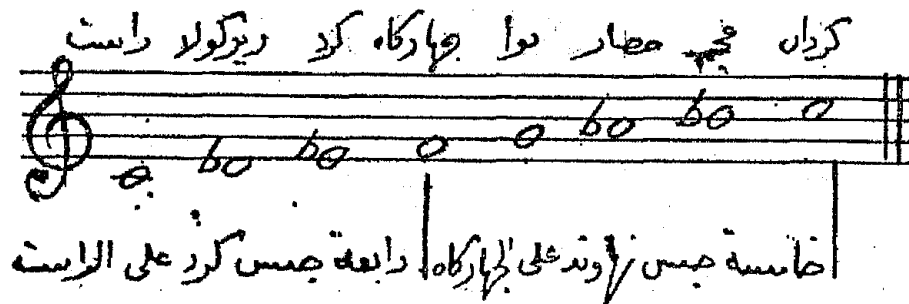 كردان عجم حصار نوا جهاركاه كرد زيركولا راست
خامسة جنس نهاوند على الجهاركاه رابعة جنس كرد على الراست